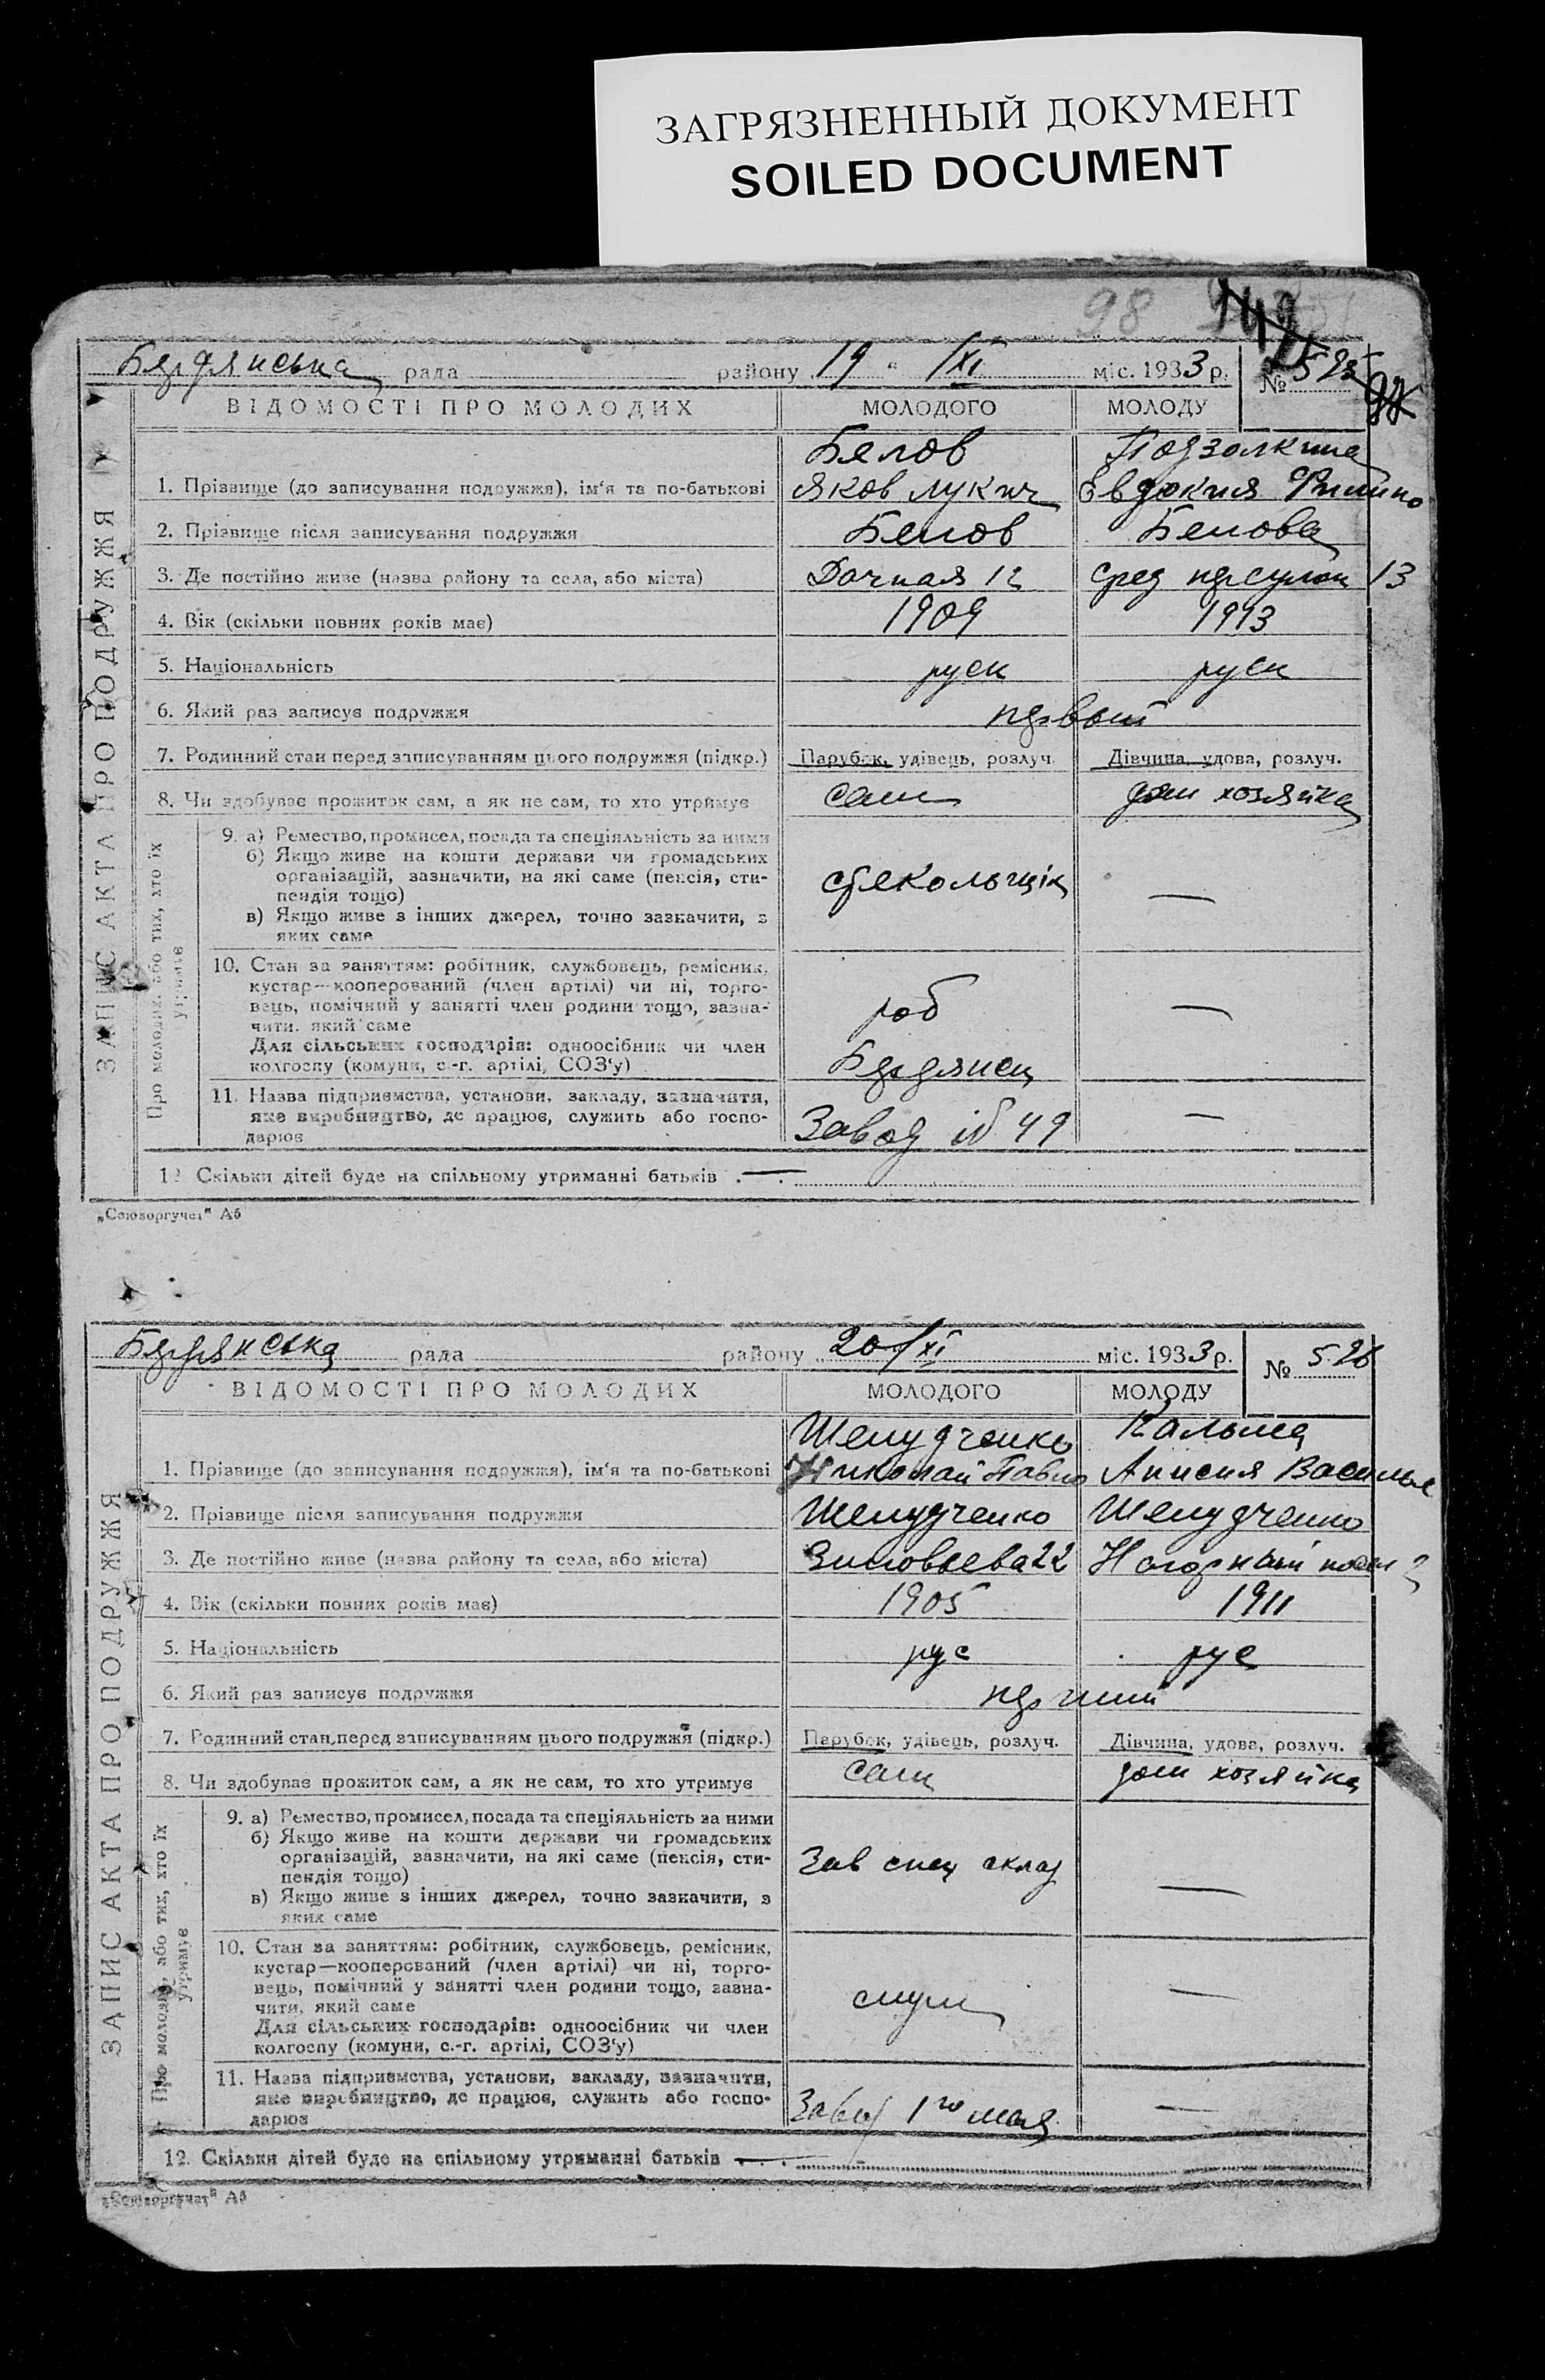 ЗАГРЯЗНЕННЫЙ ДОКУМЕНТ
SOILED DOCUMENT
98
Бердянська рада района 19 " /XI міс. 1933 р. № 525
ВІДОМОСТІ ПРО МОЛОДИХ МОЛОДОГО МОЛОДУ
ЗАПИС АКТА ПРО ПОДРУЖЖЯ
Белов Подзолкина
1. Прізвище (до записування подружжя), ім'я та по-батькові Яков Лукич Евдокия Филипо
2. Прізвище після записування подружжя Белов Белова
3. Де постійно живе (назва району та села, або міста) Дачная 12 Сред переулок 13
4. Вік (скільки повних років має) 1909 1913
5. Національність руск руск
6. Який раз записує подружжя первый
7. Родинний стан перед записуванням цього подружжя (підкр.) Парубок, удівець, розлуч. Дівчина, удова, розлуч.
8. Чи здобуває прожиток сам, а як не сам, то хто утримує сам дом хозяйка
Про молодих, або тих, хто їх утримує
9. а) Ремество, промисел, посада та спеціяльність за ними
б) Якщо живе на кошти держави чи громадських
організацій, зазначити, на які саме (пенсія, сти-
пендія тощо) стекольщік —
в) Якщо живе з інших джерел, точно зазначити, з
яких саме
10. Стан за заняттям: робітник, службовець, ремісник,
кустар—кооперований (член артілі) чи ні, торго-
вець, помічний у занятті член родини тощо, зазна-
чити, який саме роб —
Для сільських господарів: одноосібник чи член
колгоспу (комуни, с.-г. артілі, СОЗ'у)
11. Назва підприємства, установи, закладу, зазначити,
яке виробництво, де працює, служить або госпо-
дарює Завод № 49 —
12 Скільки дітей буде на спільному утриманні батьків . — .
„Союзоргучет" А6
Бердянська рада району 20/XI міс. 1933 р. № 526
ВІДОМОСТІ ПРО МОЛОДИХ МОЛОДОГО МОЛОДУ
ЗАПИС АКТА ПРО ПОДРУЖЖЯ
Шелудченко Кальма
1. Прізвище (до записування подружжя), ім'я та по-батькові Николай Павло Анисия Василье
2. Прізвище після записування подружжя Шелудченко Шелудченко
3. Де постійно живе (назва району та села, або міста) Зиновьева 22 Нагорный
4. Вік (скільки повних років має) 1905 1911
5. Національність рус рус
6. Який раз записує подружжя
7. Родинний стан перед записуванням цього подружжя (підкр.) Парубок, удівець, розлуч. Дівчина, удова, розлуч.
8. Чи здобуває прожиток сам, а як не сам, то хто утримує сам дом хозяйка
Про молодих, або тих, хто їх утримує
9. а) Ремество, промисел, посада та спеціяльність за ними
б) Якщо живе на кошти держави чи громадських
організацій, зазначити, на які саме (пенсія, сти-
пендія тощо) Зав спец склад —
в) Якщо живе з інших джерел, точно зазначити, з
яких саме
10. Стан за заняттям: робітник, службовець, ремісник,
кустар—кооперований (член артілі) чи ні, торго-
вець, помічний у занятті член родини тощо, зазна-
чити, який саме служ —
Для сільських господарів: одноосібник чи член
колгоспу (комуни, с.-г. артілі, СОЗ'у)
11. Назва підприємства, установи, закладу, зазначити,
яке виробництво, де працює, служить або госпо-
дарює Завод 1го мая —
12. Скільки дітей буде на спільному утриманні батьків — .
„Союзоргучет" А6